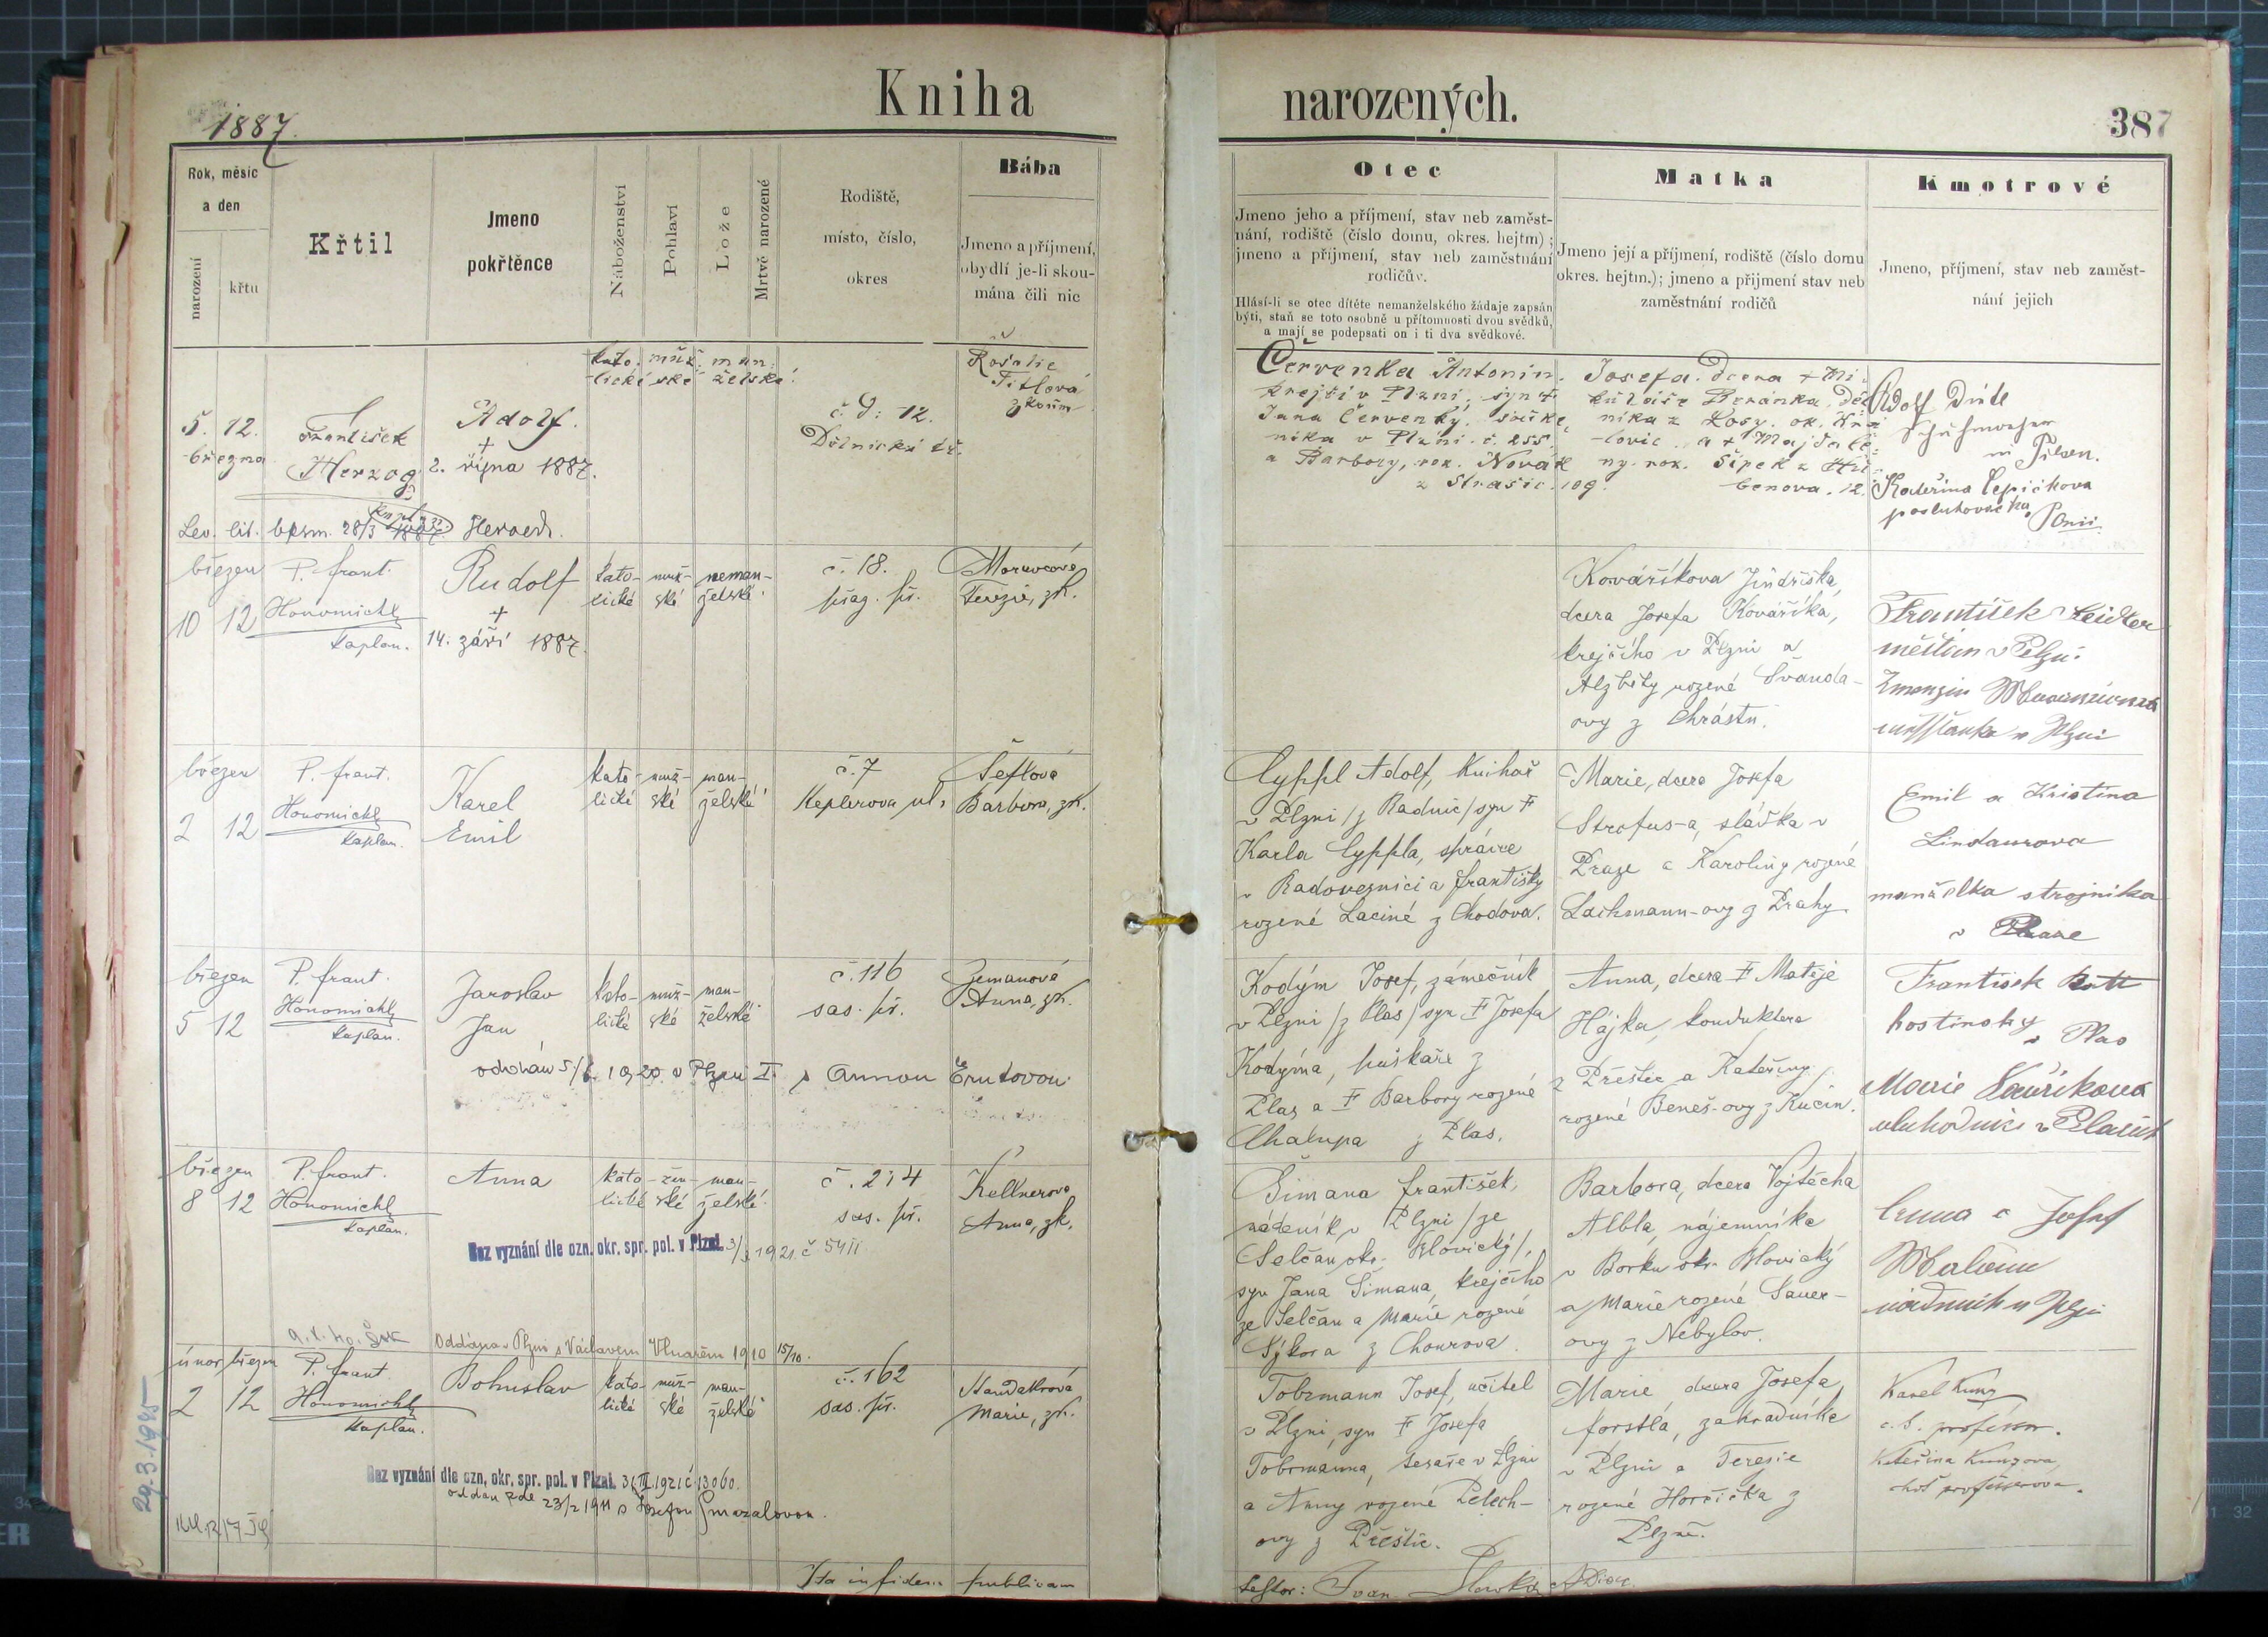 Kniha narozených.
1887.
387
Rok, měsíc a den
narození
křtu
Křtil
Jmeno pokřtěnce
Náboženství
Pohlaví
Lože
Mrtvě narozené
Rodiště,
místo, číslo,
okres
Bába
Jmeno a příjmení,
obydlí je-li skou-
mána čili nic
Otec
Jmeno jeho a příjmení, stav neb zaměst-
nání, rodiště (číslo domu, okres. hejtm) ;
jmeno a příjmení, stav neb zaměstnání
rodičův.
Hlásí-li se otec dítěte nemanželského žádaje zapsán
býti, staň se toto osobně u přítomnosti dvou svědků,
a mají se podepsati on i ti dva svědkové.
Matka
Jmeno její a příjmení, rodiště (číslo domu
okres. hejtm.); jmeno a příjmení stav neb
zaměstnání rodičů
Kmotrové
Jmeno, příjmení, stav neb zaměst-
nání jejich
5. 12.
března
František
Herzog
Adolf.
+
2. října 1887.
kato- muž- man-
lické ské želské.
č. d: 12.
Dělnická
Rosalie
Titlová
zkoum
Červenka Antonín.
krejčí v Plzni, syn +
Jana Červenky,
níka v Plzni. č. 255.
a Barbory, roz. Novák
z Strašic. 109.
Josefa. dcera + Mi-
kuláše Beránka,
níka z Losy. ok. Kra-
-lovic. a + Majdalé-
ny. roz. Šípek z Hři-
benova. 12.
Adolf
Pilsen.
Kateřina Čepičkova
březen
10 12
P. frant.
Honomichl
kaplan.
Rudolf
+
14. září 1887.
kato- muž- neman-
lické ské želské.
č. 18.
praž. př.
Moravcová
Terezie, zk.
Kovaříkova Jindřiška,
dcera Josefa Kovaříka,
krejčího v Plzni a
Alžběty rozené Švanda-
ovy z Chrástu.
František
měšťan v Plzni
v Plzni
březen
2 12
P. frant.
Honomichl
kaplan.
Karel
Emil
kato- muž- man-
lické ské želské
č. 7
Keplerova ul.
Šeflová
Barbora, zk.
Cyppl Adolf, knihař
v Plzni /z Radnic/ syn
Karla Cyppla, správce
v Radovesnici a františky
rozené Laciné z Chodova.
Marie, dcera Josefa
Strofus-a, sládka v
Praze a Karoliny rozené
Lachmann-ovy z Prahy
Emil a Kristina
Lindaurova
manželka strojníka
v Praze
březen
5 12
P. frant.
Honomichl
kaplan.
Jaroslav
Jan
kato- muž- man-
lické ské želské
č. 116
sas. př.
Zemanová
Anna, zk.
oddán 5/6. 1920 v Plzni I. s Annou Ernstovou
Kodým Josef, zámečník
v Plzni /z Plas/ syn Josefa
Kodýma, puškaře z
Plas a Barbory rozené
Chalupa z Plas.
Anna, dcera Matěje
Hájka, konduktera
z Přeštic a Kateřiny
rozené Beneš-ovy z Kucin.
František
hostinský
v Plas
Marie
březen
8 12
P. frant.
Honomichl
kaplan.
Anna
kato- žen- man-
lické ské želské
č. 214
sas. př.
Kellnerova
Anna, zk.
Bez vyznání dle ozn. okr. spr. pol. v Plzni 3/3 1921. č 5411
Oddána v Plzni s Václavem Vlnařem 1910 15/10.
Šimana františek,
nádeník v Plzni /ze
Selčan okr. Blovický/,
syn Jana Šimana, krejčího
ze Selčan a Marie rozené
Sýkora z Chourova.
Barbora, dcera Vojtěcha
Albla, nájemníka
v Borku okr. Blovický
a Marie rozené Sauer-
ovy z Nebylov.
Anna a Josef
únor, březen
2 12
P. frant.
Honomichl
kaplan.
Bohuslav
kato- muž- man-
lické ské želské
č. 162
sas. př.
Marie, zk.
Bez vyznání dle ozn. okr. spr. pol. v Plzni. 31/III. 1921 č. 13060.
oddán zde 23/2 1911 s Josefou Smazalovou.
Tobrmann Josef, učitel
v Plzni, syn Josefa
Tobrmanna, tesaře v Plzni
a Anny rozené Pelech-
ovy z Přeštic.
Marie dcera Josefa
forstla, zahradníka
v Plzni a Terezie
rozené Horčička z
Plzně.
Karel Kunz
c. k. professor.
Kateřina Kunzova,
choť professorova.
29.3.1945
Ita in fidem publicam
testor: Ivan